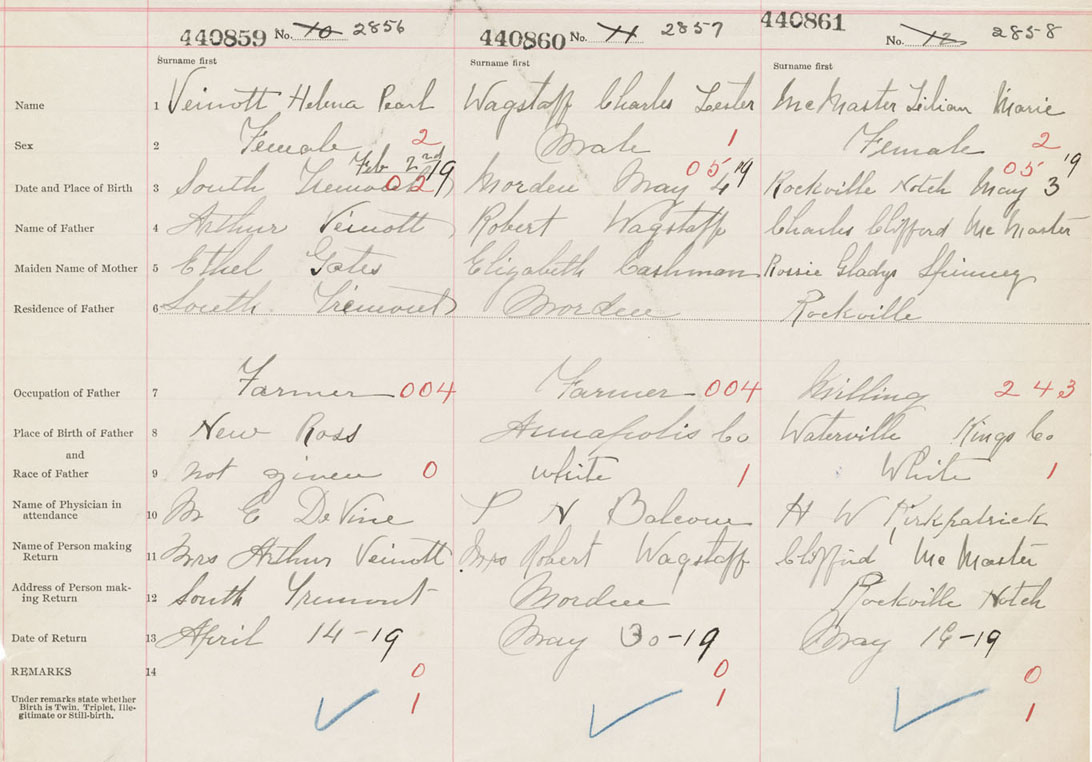 440859 No. 10 2856 440860 No. 11 2857 440861 No. 12 2858
Surname first Surname first Surname first
Name 1 Veinott Helena Pearl Wagstaff Charles Lester McMaster Lilian Marie
Sex 2 Female 2 Male 1 Female 2
Feb 2nd 19 05 19 05 '19
Date and Place of Birth 3 South Tremont 02 Morden May 4 Rockville Notch May 3
Name of Father 4 Arthur Veinott Robert Wagstaff Charles Clifford McMaster
Maiden Name of Mother 5 Ethel Gates Elizabeth Cashman Rossie Gladys Spinney
Residence of Father 6 South Tremont Morden Rockville
Occupation of Father 7 Farmer 004 Farmer 004 Milling 243
Place of Birth of Father 8 New Ross Annapolis Co Waterville Kings Co
and
Race of Father 9 not given 0 White 1 White 1
Name of Physician in
attendance 10 M E DeVine P N Balcom H W Kirkpatrick
Name of Person making
Return 11 Mrs Arthur Veinott Mrs Robert Wagstaff Clifford McMaster
Address of Person mak-
ing Return 12 South Tremont Morden Rockville Notch
Date of Return 13 April 14-19 May 30-19 May 19-19
REMARKS 14 0 0 0
Under remarks state whether
Birth is Twin, Triplet, Ille-
gitimate or Still-birth. 1 1 1